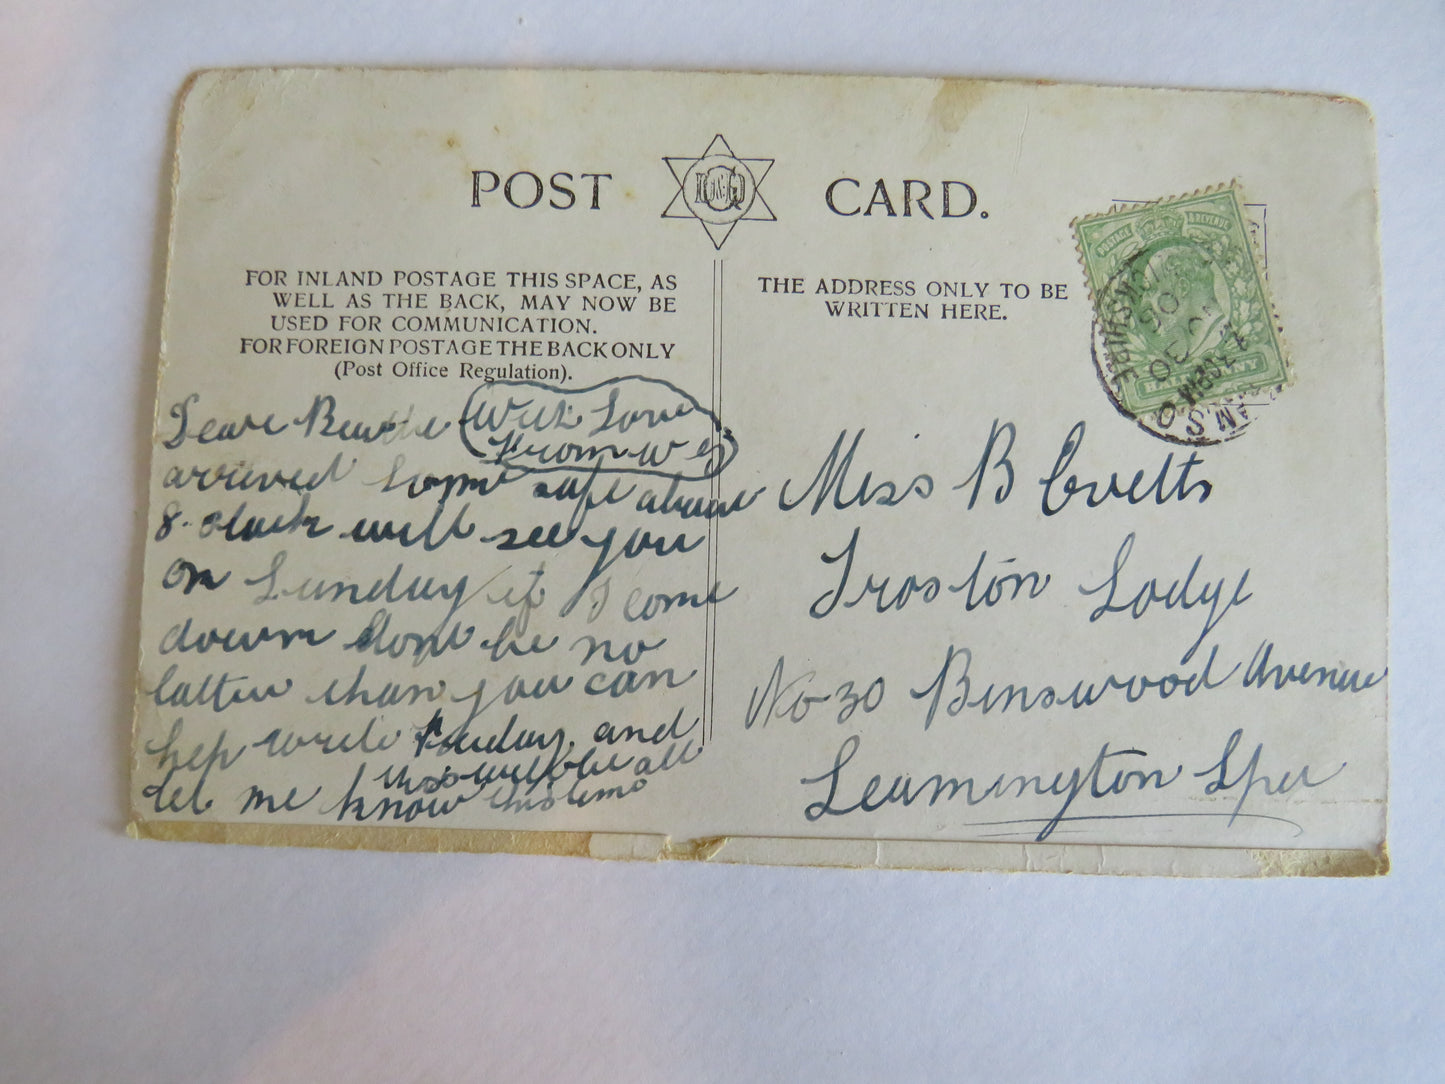 POST CARD.
FOR INLAND POSTAGE THIS SPACE, AS
WELL AS THE BACK, MAY NOW BE
USED FOR COMMUNICATION.
FOR FOREIGN POSTAGE THE BACK ONLY
(Post Office Regulation).
Dear
With Love
From W
arrived safe about
8. will see you
on Sunday if I come
down dont be no
latter than you can
help write and
this will be all
let me know this time
THE ADDRESS ONLY TO BE
WRITTEN HERE.
POSTAGE & REVENUE
Miss B
Troston Lodge
No 30 Binswood Avenue
Leamington Spa